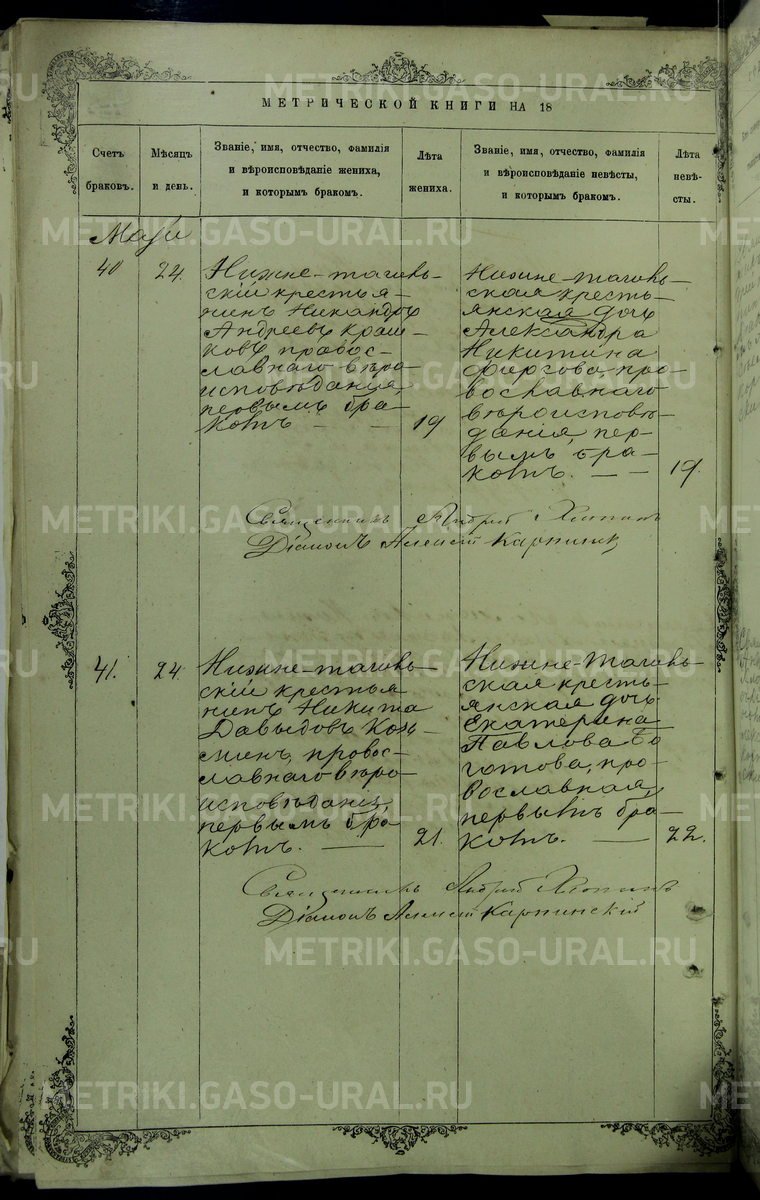 МЕТРИЧЕСКОЙ КНИГИ НА 18
Счетъ
браковъ.
Мѣсяцъ
и день.
Званіе, имя, отчество, фамилія
и вѣроисповѣданіе жениха,
и которымъ бракомъ.
Лѣта
жениха.
Званіе, имя, отчество, фамилія
и вѣроисповѣданіе невѣсты,
и которымъ бракомъ.
Лѣта
невѣ-
сты.
40
24.
Нижне-тагиль-
скій крестья-
нинъ Никандръ
Андреевъ
православ-
славнаго вѣро
исповѣданія,
первымъ бра-
комъ — —
19
Нижне-тагиль-
ская кресть-
янская дочь
Александра
Никитина
пра-
вославнаго
вѣроисповѣ-
данія, пер-
вымъ бра-
комъ. — —
19.
Священникъ Андрей
Діаконъ Алексій Карпинск
41.
24.
Нижне-тагиль-
скій крестья
нинъ Никита
Давыдовъ Козь-
минъ, правос-
лавнаго вѣро
исповѣданія,
первымъ бра
комъ. —
21.
Нижне-Тагиль-
ская кресть-
янская дочь
Екатерина
Павлова
пра-
вославная,
первымъ бра-
комъ. —
22.
Священникъ Андрей
Діаконъ Алексій Карпинскій
METRIKI.GASO-URAL.RU